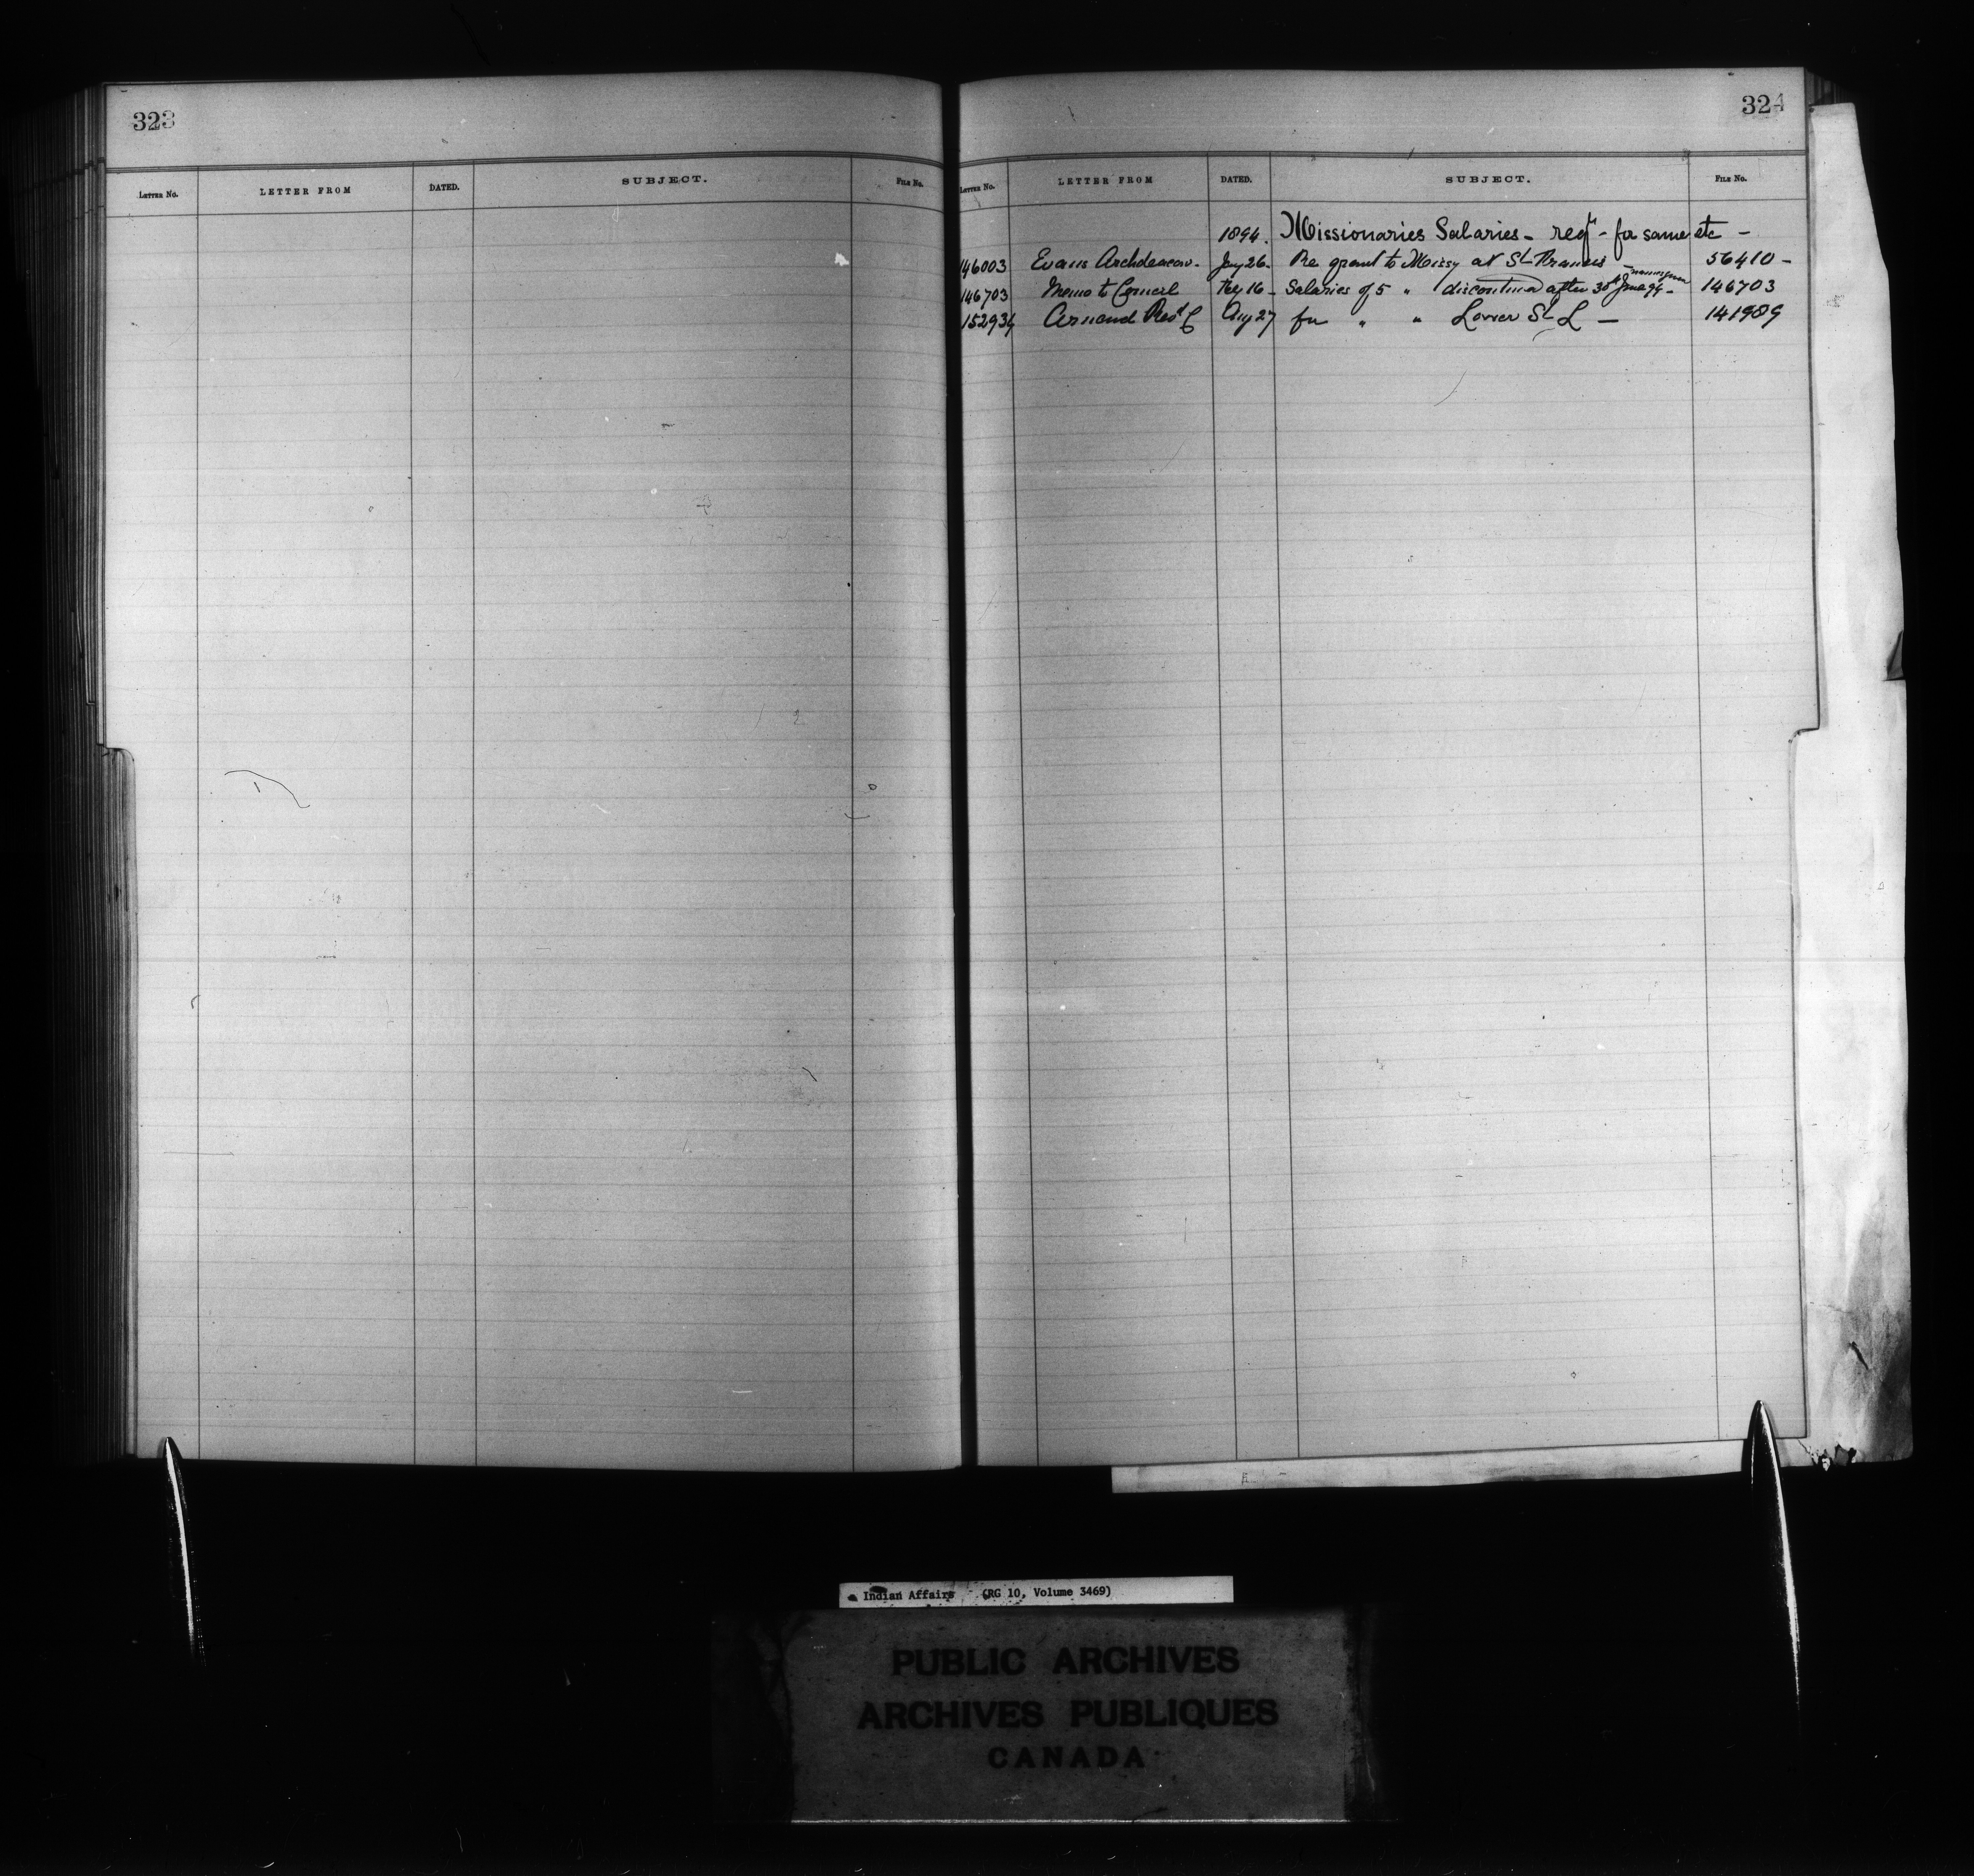 323
LETTER No. LETTER FROM DATED. SUBJECT. FILE No.
324
LETTER No. LETTER FROM DATED. SUBJECT. FILE No.
1894. Missionaries Salaries - reqt - for same etc -
146003 Evans Archdeacon - Jany 26 - Re grant to Missy at St Francis - 56410 -
146703 Memo to Council Feby 16 - Salaries of 5 " discontinued after 30th June 94 - 146703
152934 Armand Revd C Aug 27 for " " Lower St L - 141989
Indian Affairs (RG 10, Volume 3469)
PUBLIC ARCHIVES
ARCHIVES PUBLIQUES
CANADA